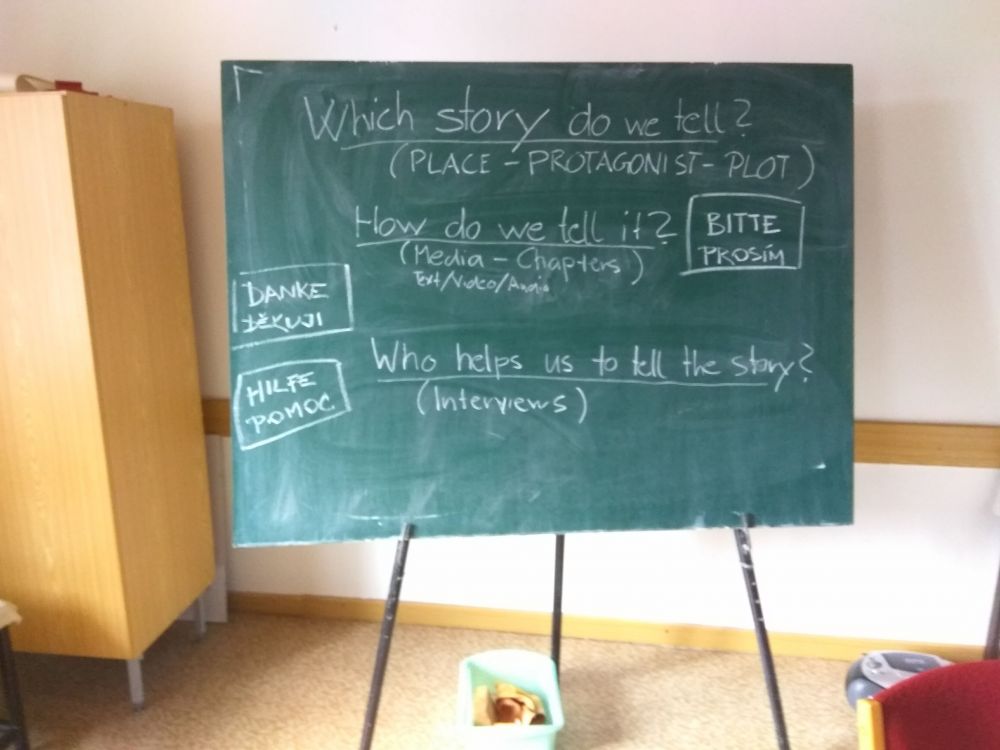 Which story do we tell?
(PLACE - PROTAGONIST - PLOT)
How do we tell it?
(Media - Chapters)
Text/Video/Audio
BITTE
PROSÍM
DANKE
DĚKUJI
Who helps us to tell the story?
(Interviews)
HILFE
POMOC